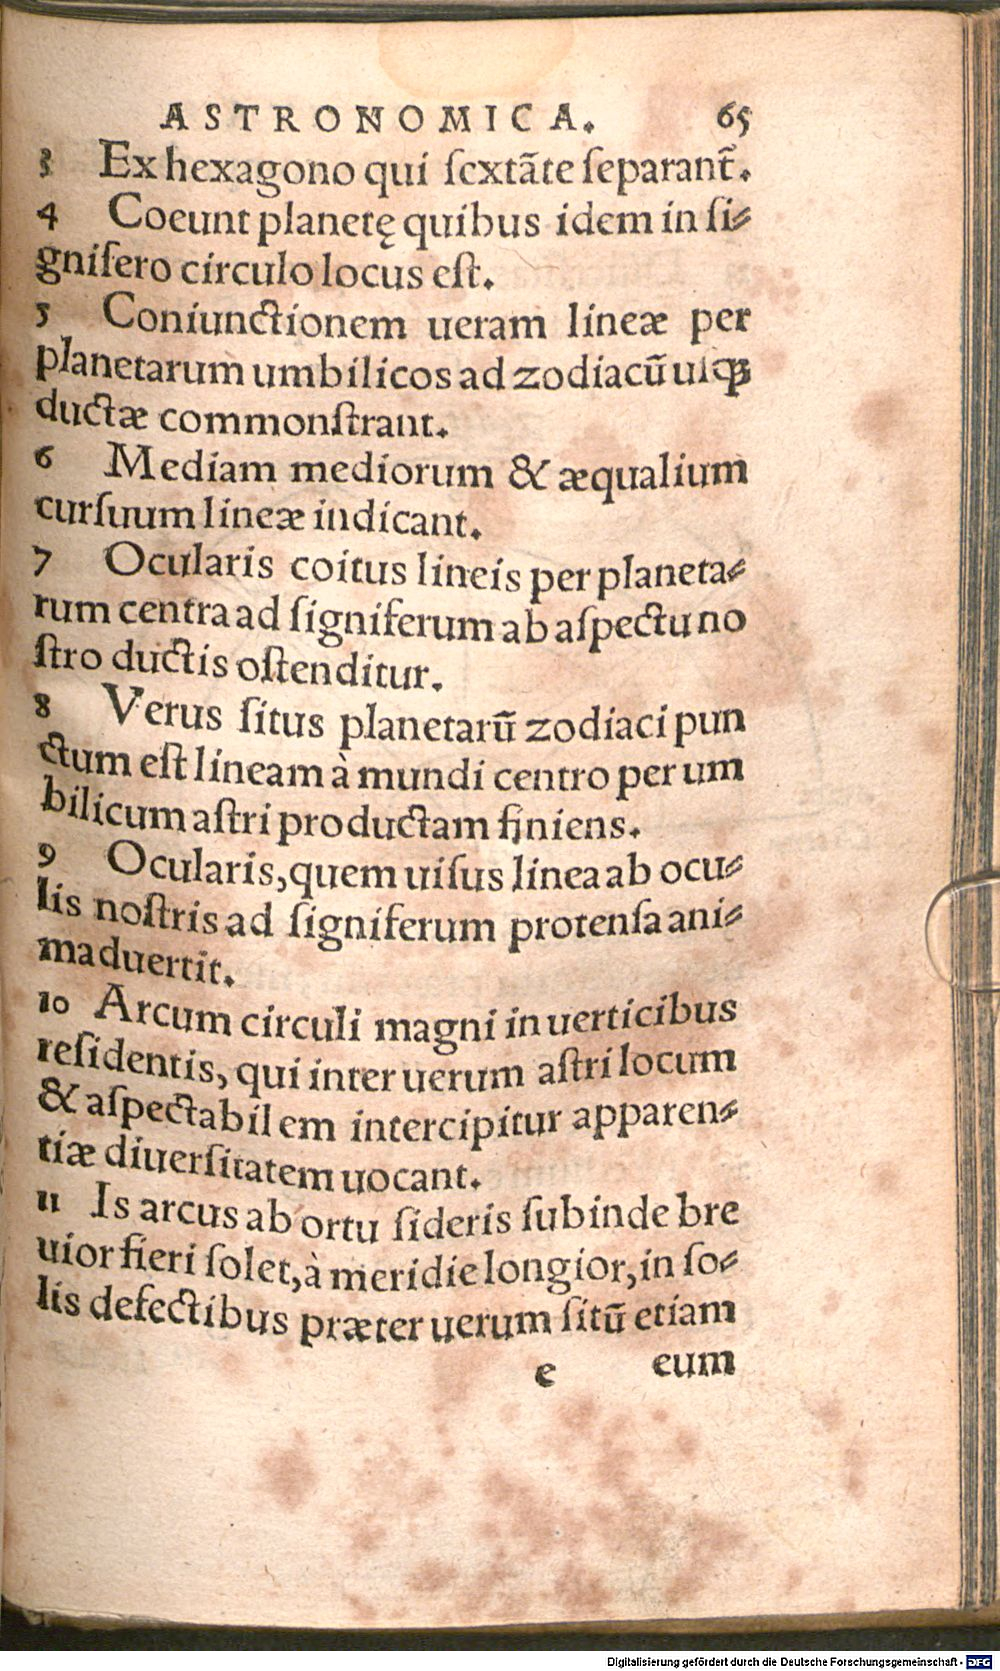 ASTRONOMICA. 65
3 Ex hexagono qui sextãte separant̃.
4 Coeunt planetę quibus idem in si-
gnifero circulo locus est.
5 Coniunctionem ueram lineæ per
planetarum umbilicos ad zodiacũ usqꝫ
ductæ commonstrant.
6 Mediam mediorum & æqualium
cursuum lineæ indicant.
7 Ocularis coitus lineis per planeta-
rum centra ad signiferum ab aspectu no
stro ductis ostenditur.
8 Verus situs planetarũ zodiaci pun
ctum est lineam à mundi centro per um
bilicum astri productam finiens.
9 Ocularis, quem uisus linea ab ocu-
lis nostris ad signiferum protensa ani-
maduertit.
10 Arcum circuli magni in uerticibus
residentis, qui inter uerum astri locum
& aspectabilem intercipitur apparen-
tiæ diuersitatem uocant.
11 Is arcus ab ortu sideris subinde bre
uior fieri solet, à meridie longior, in so-
lis defectibus præter uerum sitũ etiam
e eum
Digitalisierung gefördert durch die Deutsche Forschungsgemeinschaft - DFG